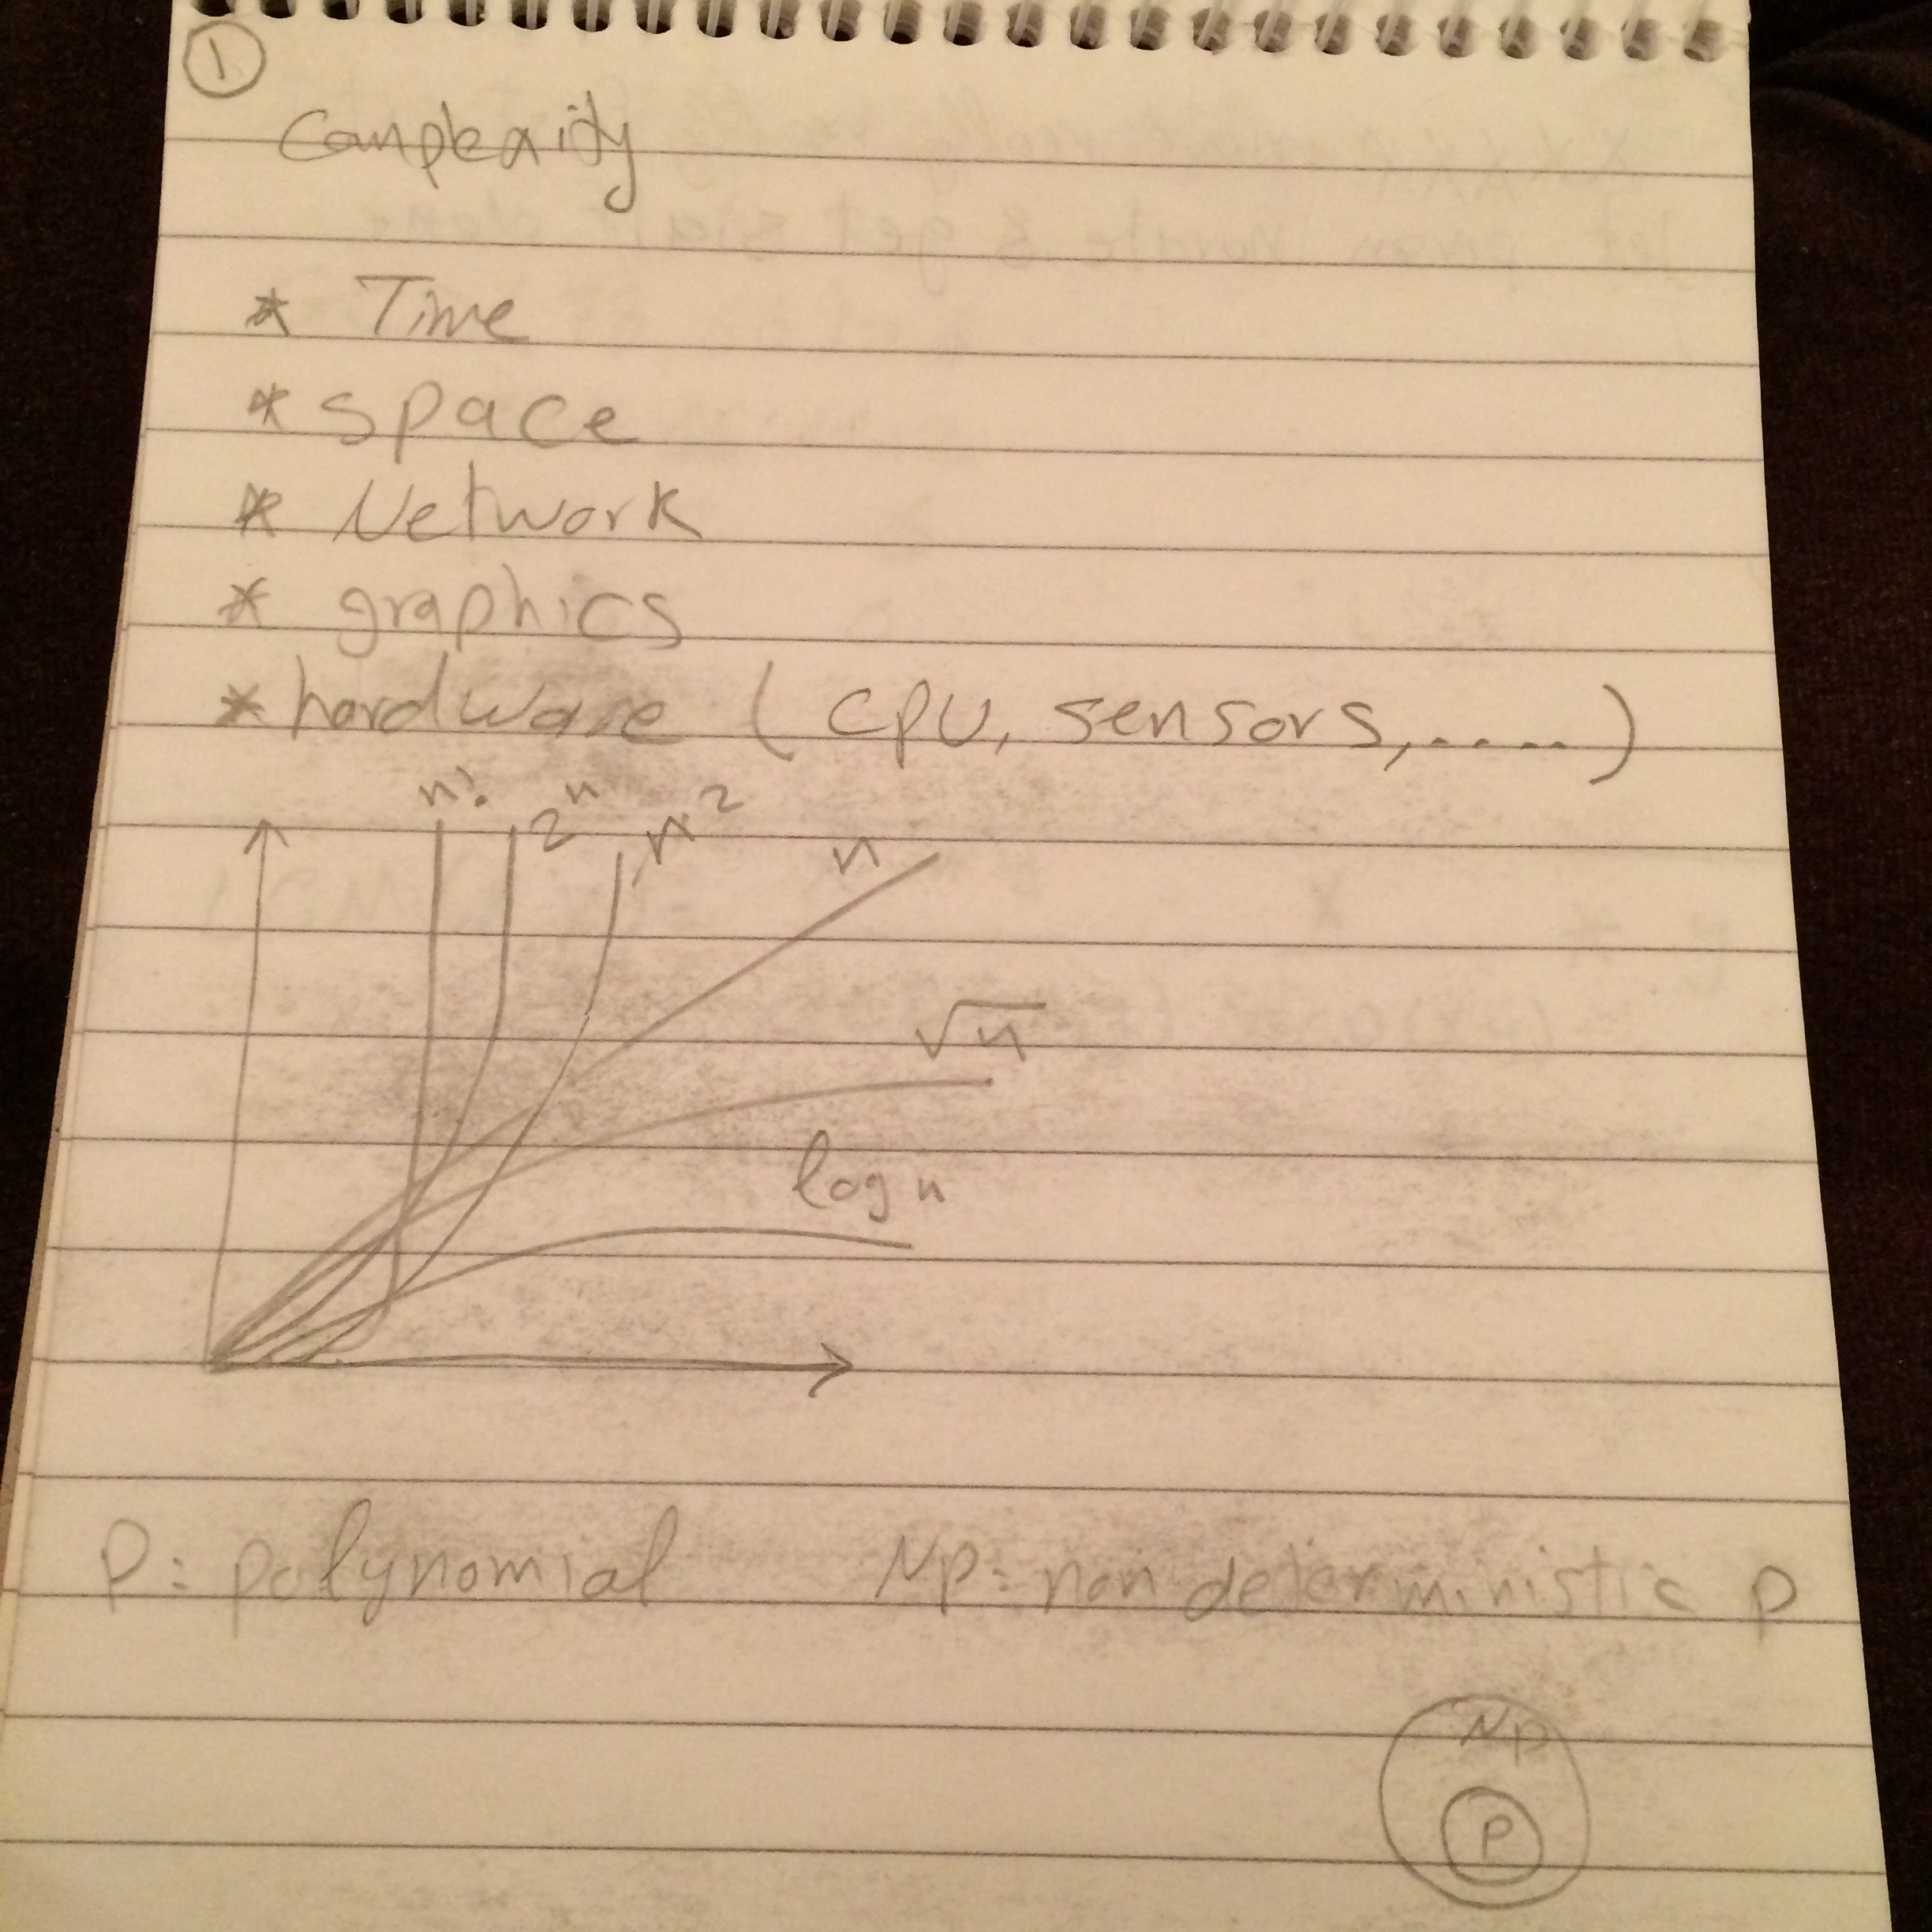 1
Complexity
* Time
* space
* Network
* graphics
* hardware ( CPU, sensors,..... )
n! 2ⁿ n² n
√n
log n
P: polynomial NP: non deterministic P
NP
P